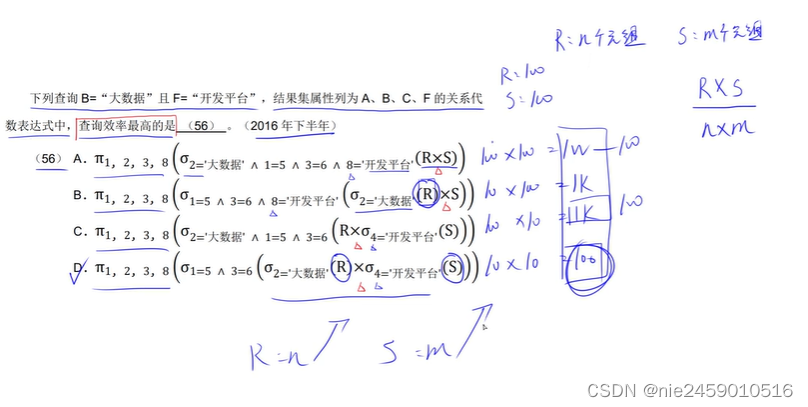 R:n个元组 S:m个元组
R:100
S:100
R×S
n×m
下列查询 B=“大数据”且 F=“开发平台”，结果集属性列为 A、B、C、F 的关系代
数表达式中，查询效率最高的是 （56） 。（2016 年下半年）
（56）A. π1, 2, 3, 8 (σ2='大数据' ∧ 1=5 ∧ 3=6 ∧ 8='开发平台'(R×S)) 100×100 =1W 100
B. π1, 2, 3, 8 (σ1=5 ∧ 3=6 ∧ 8='开发平台' (σ2='大数据'(R)×S)) 10×100 =1K
C. π1, 2, 3, 8 (σ2='大数据' ∧ 1=5 ∧ 3=6 (R×σ4='开发平台'(S))) 100×10 =1K 100
D. π1, 2, 3, 8 (σ1=5 ∧ 3=6 (σ2='大数据'(R)×σ4='开发平台'(S))) 10×10 =100
R=n S=m
CSDN @nie2459010516